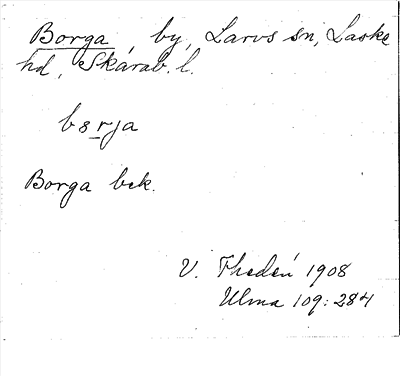 Borga, by, Larvs sn, Laske
hd, Skarab. l.
bsrja
Borga bek.
V. Fredén 1908
Ulma 109:284